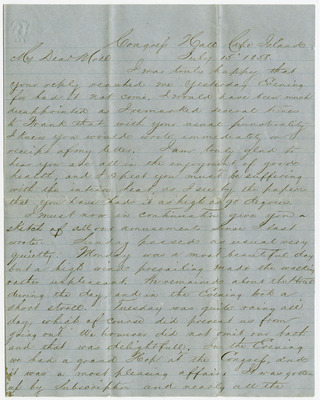 Congress Hall Cape Island
My Dear Moll July 15th 1858.
I was truly happy that
your reply reached me Yesterday Evening
for had it not come, I would have been much
disappointed as I remarked several times
to Frank that with your usual punctuality
I knew you would write immediately on
receipt of my letter. I am truly glad to
hear you are all in the enjoyment of good
health, and I expect you must be suffering
with the intense heat, as I see by the papers
that you have had it as high as 90 degrees.
I must now in continuation give you a
sketch of our amusements since I last
wrote. Sunday passed as usual very
quietly. Monday was a most beautiful day
but a high wind prevailing made the walking
rather unpleasant. We remained about the Hotel
during the day, and in the Evening took a
short stroll. Tuesday was quite rainy all
day, which of course did prevent us from
going out. We however did not omit our bath
and that was delightful. In the Evening
we had a grand Hop at the Congress, and
it was a most pleasing affair. It was gotten
up by Subscription and nearly all the